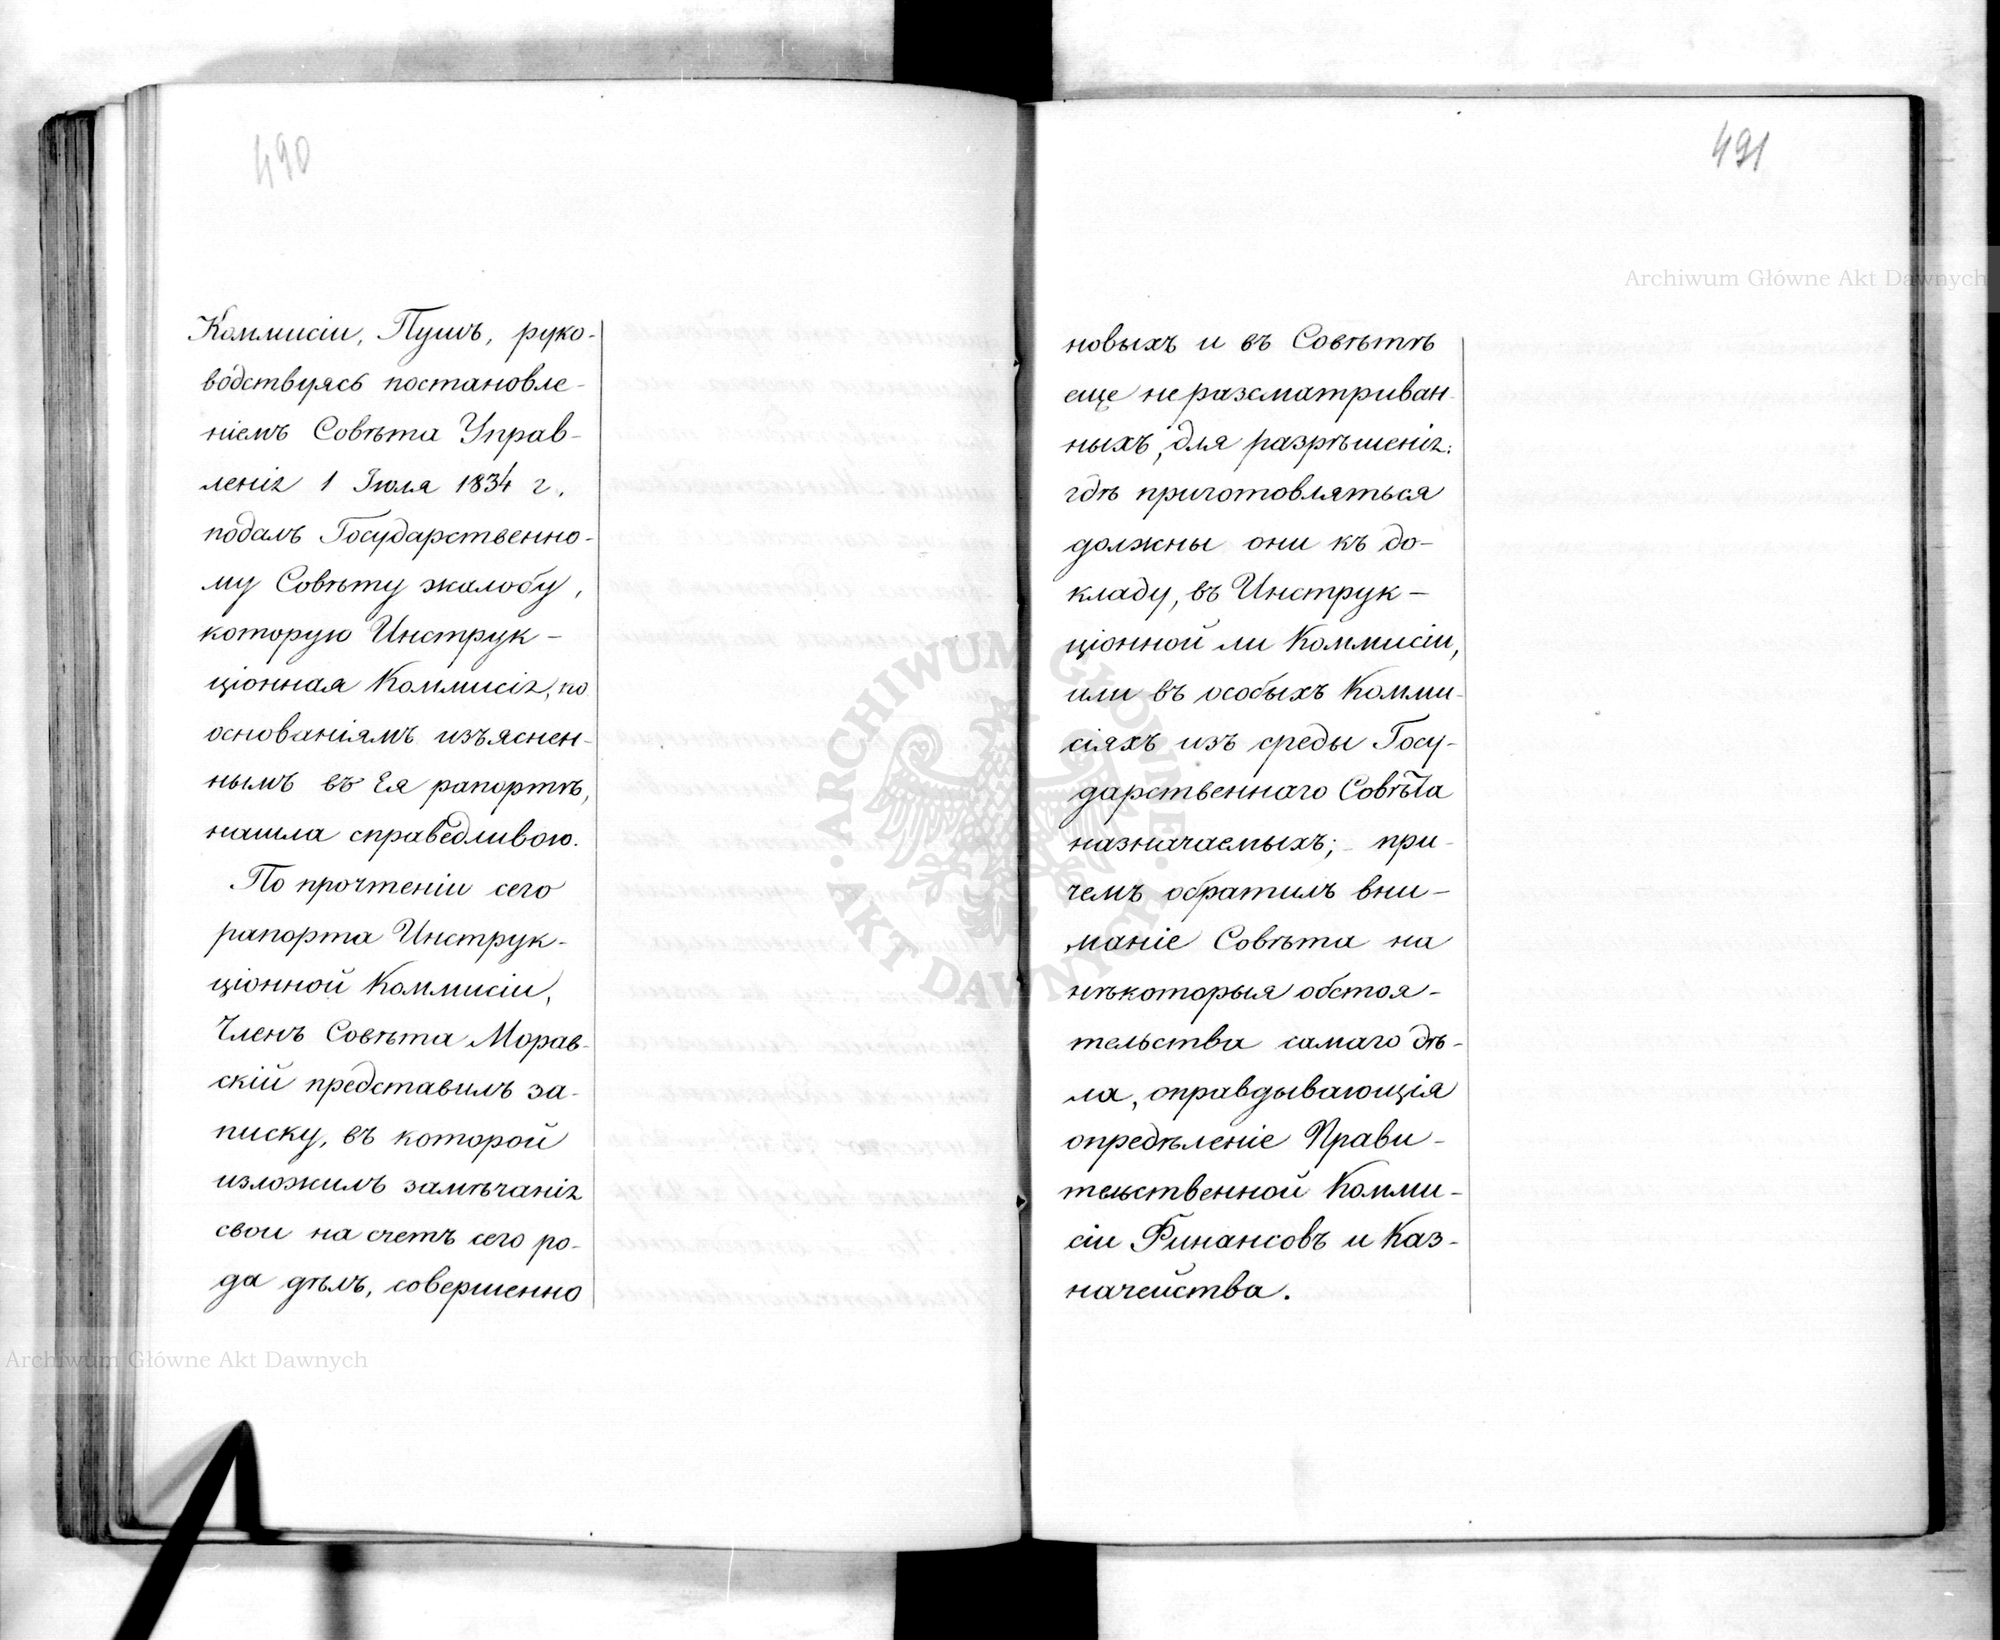 490
Коммисіи, Пушъ, руко-
водствуясь постановле-
ніемъ Совѣта Управ-
ленія 1 Іюля 1834 г.
подалъ Государственно-
му Совѣту жалобу,
которую Инструк-
ціонная Коммисія, по
основаніямъ изъяснен-
нымъ въ Ея рапортѣ,
нашла справедливою.
По прочтеніи сего
рапорта Инструк-
ціонной Коммисіи,
Членъ Совѣта Морав-
скій представилъ за-
писку, въ которой
изложилъ замѣчанія
свои на счетъ сего ро-
да дѣлъ, совершенно
491
новыхъ и въ Совѣтѣ
еще не разсматриван-
ныхъ, для разрѣшенія:
гдѣ приготовляться
должны они къ до-
кладу, въ Инструк-
ціонной ли Коммисіи,
или въ особыхъ Комми-
сіяхъ изъ среды Госу-
дарственнаго Совѣта
назначаемыхъ; при-
чемъ обратилъ вни-
маніе Совѣта на
нѣкоторыя обстоя-
тельства самаго дѣ-
ла, оправдывающія
опредѣленіе Прави-
тельственной Комми-
сіи Финансовъ и Каз-
начейства.
Archiwum Główne Akt Dawnych
Archiwum Główne Akt Dawnych
ARCHIWUM GŁÓWNE AKT DAWNYCH